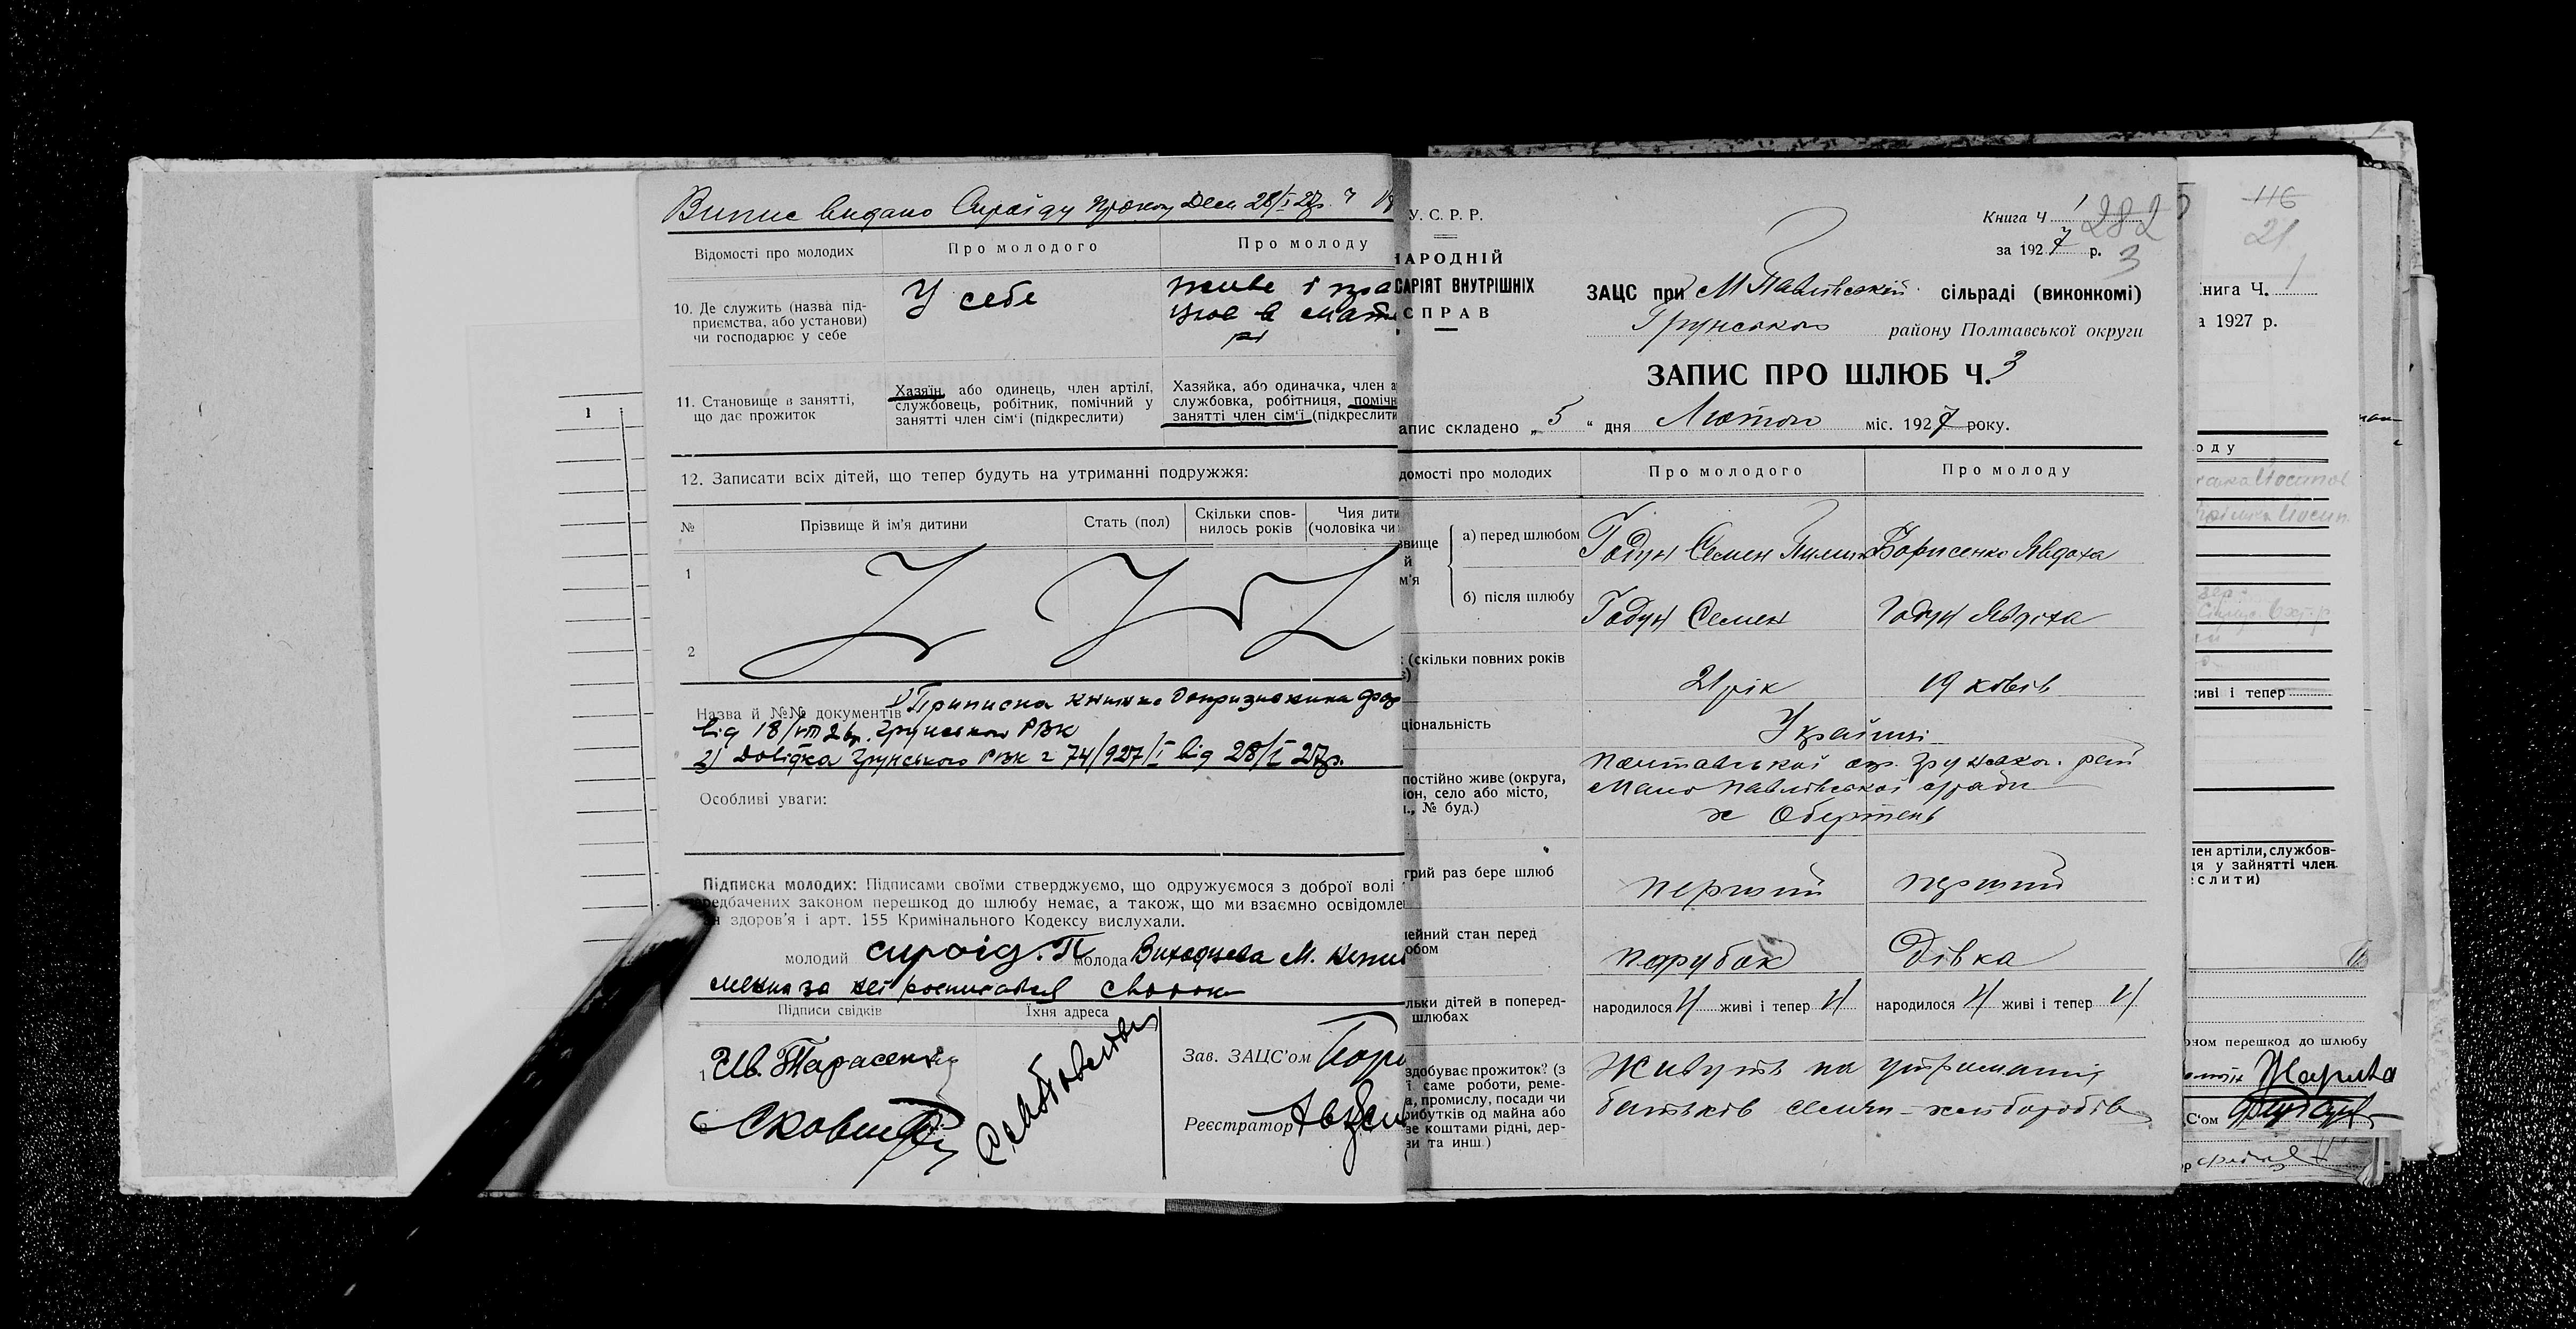 Випис видано Сироїду Прокопу Дем 28/I 27р. Ч
Відомості про молодих
Про молодого
Про молоду
10. Де служить (назва під-
приємства, або установи)
чи господарює у себе
У себе
живе і пра
цює в мате
рі
11. Становище в занятті,
що дає прожиток
Хазяїн, або одинець, член артілі,
службовець, робітник, помічний у
занятті член сім'ї (підкреслити)
Хазяйка, або одиначка, член а
службовка, робітниця, помічн
занятті член сім'ї (підкреслити
12. Записати всіх дітей, що тепер будуть на утриманні подружжя:
№
Прізвище й ім'я дитини
Стать (пол)
Скільки спов-
нилось років
Чия дити
(чоловіка чи
1
2
Назва й №№ документів 1) Приписна книжка допризивника
від 18/VIII 26р. Грунського РВК
2) Довідка Грунського РВК 74/927/I від 28/I 27р.
Особливі уваги:
Підписка молодих: Підписами своїми стверджуємо, що одружуємося з доброї волі
редбачених законом перешкод до шлюбу немає, а також, що ми взаємно освідомле
я здоров'я і арт. 155 Кримінального Кодексу вислухали.
молодий Сироїд. П молода Виходцева М.
за неї росписався
Підписи свідків
Їхня адреса
1 Ів. Тарасенко
Зав. ЗАЦС'ом
Реєстратор
1
У. С. Р. Р.
НАРОДНІЙ
САРІЯТ ВНУТРІШНІХ
СПРАВ
Книга Ч 1 282
за 1927 р. 3
ЗАЦС при М Павлівській сільраді (виконкомі)
Грунського району Полтавської округи
ЗАПИС ПРО ШЛЮБ Ч. 3
апис складено „ 5 " дня Лютого міс. 1927 року.
домості про молодих
Про молодого
Про молоду
звище
й
м'я
а) перед шлюбом
Годун Семен Пилип
Борисенко Явдоха
б) після шлюбу
Годун Семен
Годун Явдоха
: (скільки повних років
21 рік
19 років
ціональність
Українці
постійно живе (округа,
он, село або місто,
., № буд.)
Полтавської окр. Грунсько. рай
Мало Павлівської с/ради
х Обертень
трий раз бере шлюб
перший
перший
ейний стан перед
обом
парубок
Дівка
льки дітей в поперед-
шлюбах
народилося Н живі і тепер Н
народилося Н живі і тепер Н
здобуває прожиток? (з
ї саме роботи, реме-
а, промислу, посади чи
рибутків од майна або
ве коштами рідні, дер-
ви та инш.)
Живуть на утриманні
батьків селян-хліборобів
116
21
нига Ч. 1
а 1927 р.
оду
живі і тепер
лен артіли, службов-
ця у зайнятті член
еслити)
оном перешкод до шлюбу
С'ом